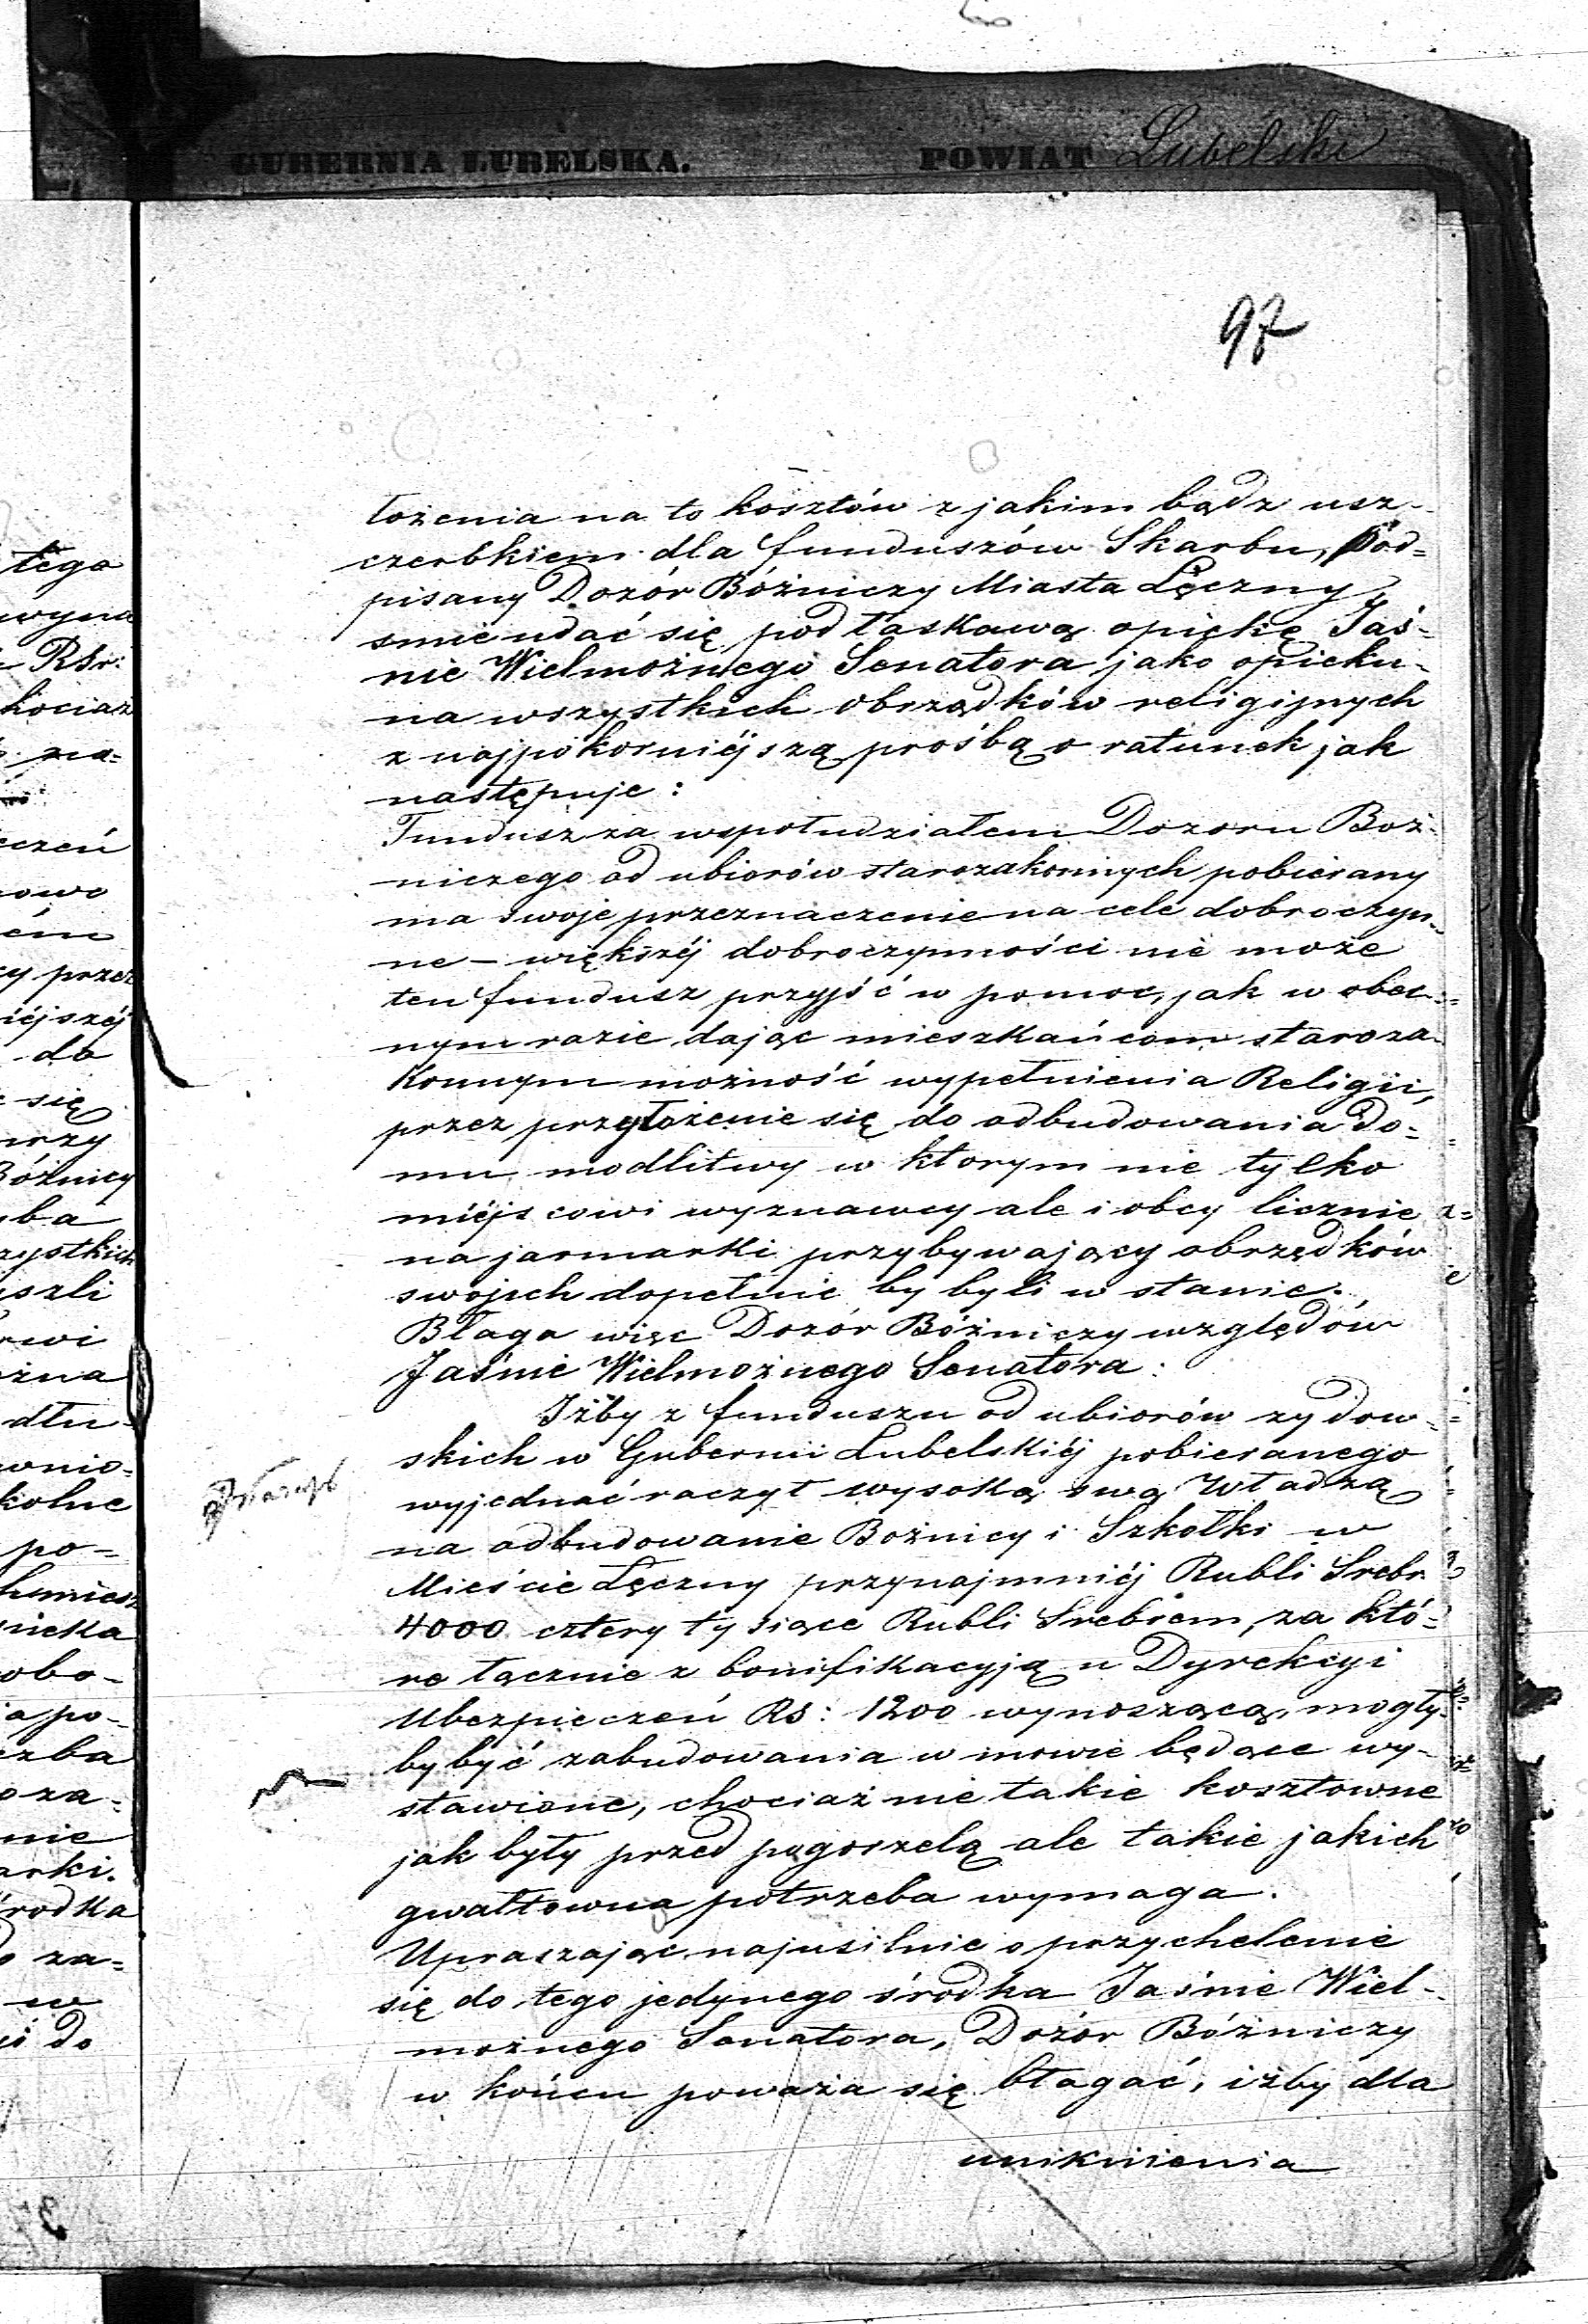 GUBERNIA LUBELSKA. POWIAT Lubelski
97
łożenia na to kosztów z jakim bądz usz-
czerbkiem dla funduszów Skarbu, pod=
pisany Dozór Bóżniczy Miasta Łęczny,
smie udać się pod łaskawą opiekę Jaś-
nie Wielmożnego Senatora jako opieku-
na wszystkich obrządków religijnych
z najpokorniéjszą prośbą o ratunek jak
następuje:
Fundusz za wspołudziałem Dozoru Boż-
niczego od ubiorów starozakonnych pobierany
ma swoje przeznaczenie na cele dobroczyn-
ne – większéj dobroczynności nie może
ten fundusz przyjść w pomoc, jak w obec-
nym razie dając mieszkańcom staroza-
konnym możność wypełnienia Religii,
przez przyłożenie się do odbudowania do=
mu modlitwy w ktorym nie tylko
miéjscowi wyznawcy ale i obcy licznie
na jarmarki przybywający obrzędków
swojich dopełnić by byli w stanie.
Błaga więc Dozór Bóżniczy względów
Jaśnie Wielmożnego Senatora:
Iżby z funduszu od ubiorów zydow-
skich w Gubernii Lubelskiéj pobieranego
wyjednać raczył wysoką swą Władzą
na odbudowanie Bożnicy i Szkołki w
Mieście Łęczny przynajmniéj Rubli Srebr.
4000 cztery tysiące Rubli Srebrem, za któ-
re łącznie z bonifikacyją u Dyrekcyi
Ubezpieczeń Rs: 1200 wynoszącą, mogły-
by być zabudowania w mowie będące wy-
stawione, chociaż nie takie kosztowne
jak były przed pogorzelą ale takie jakich
gwałtowna potrzeba wymaga.
Upraszając najusilnie o przychelenie
się do tego jedynego środka Jaśnie Wiel-
możnego Senatora, Dozór Bóżniczy
w końcu poważa się błagać, iżby dla
uniknienia